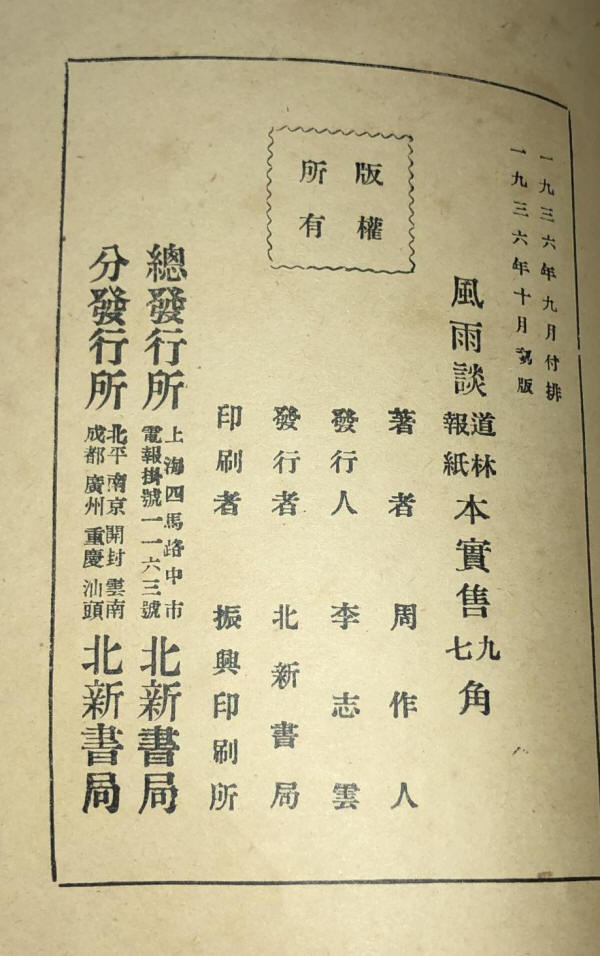 一九三六年九月付排
一九三六年十月版
風雨談
道林
報紙
本實售
九
七
角
版權
所有
著者 周作人
發行人 李志雲
發行者 北新書局
印刷者 振興印刷所
總發行所
上海四馬路中市
電報掛號一一六三號
北新書局
分發行所
北平 南京 開封 雲南
成都 廣州 重慶 汕頭
北新書局